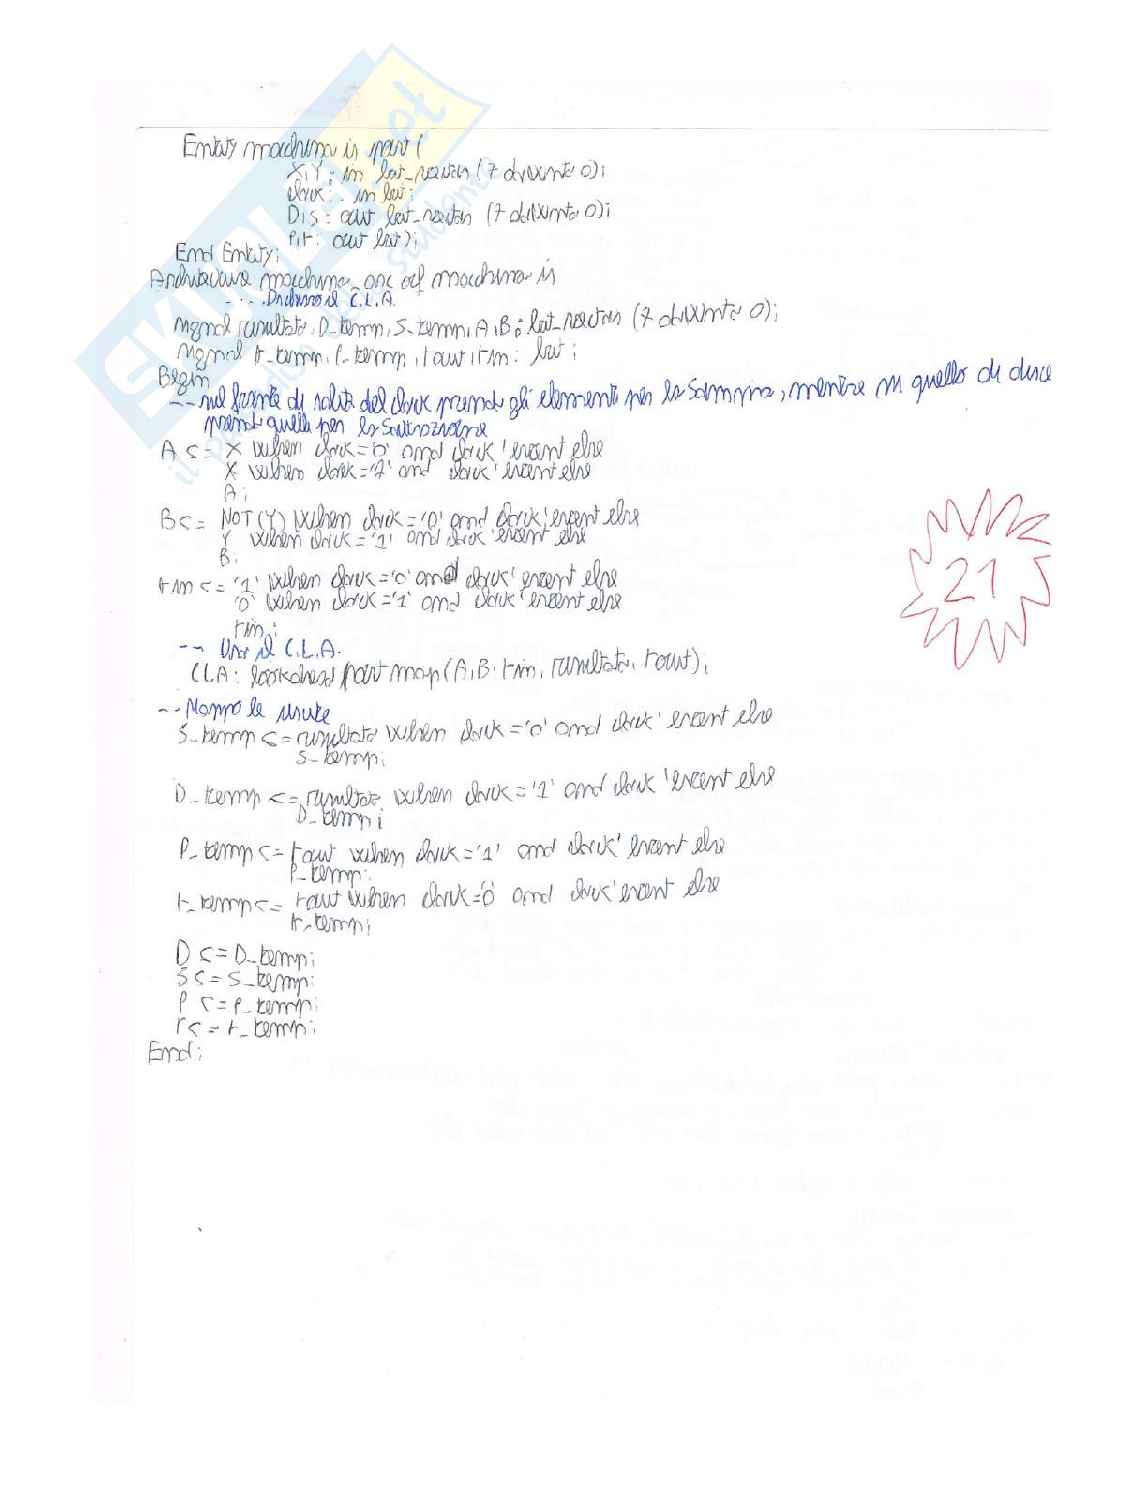 Entity macchina is port (
X,Y: in bit_vector (7 downto 0);
clock: in bit;
D,S: out bit_vector (7 downto 0);
P,r: out bit);
End Entity;
Architecture macchina_one of macchina is
---- Dichiaro il C.L.A.
signal risultato, D_temp, S_temp, A, B: bit_vector (7 downto 0);
signal r_temp, P_temp, rout, rin: bit;
Begin
-- nel fronte di salita del clock prendo gli elementi per la Somma, mentre in quello di discesa
prendo quelli per la Sottrazione
A <= X when clock='0' and clock'event else
X when clock='1' and clock'event else
A;
B <= NOT(Y) when clock='0' and clock'event else
Y when clock='1' and clock'event else
B;
rin <= '1' when clock='0' and clock'event else
'0' when clock='1' and clock'event else
rin;
-- Uso il C.L.A.
CLA: lookahead port map(A,B, rin, risultato, rout);
-- Mappo le uscite
S_temp <= risultato when clock='0' and clock'event else
S_temp;
D_temp <= risultato when clock='1' and clock'event else
D_temp;
P_temp <= rout when clock='1' and clock'event else
P_temp;
r_temp <= rout when clock='0' and clock'event else
r_temp;
D <= D_temp;
S <= S_temp;
P <= P_temp;
r <= r_temp;
End;
21
SKUOLA.net
il paradiso dello studente